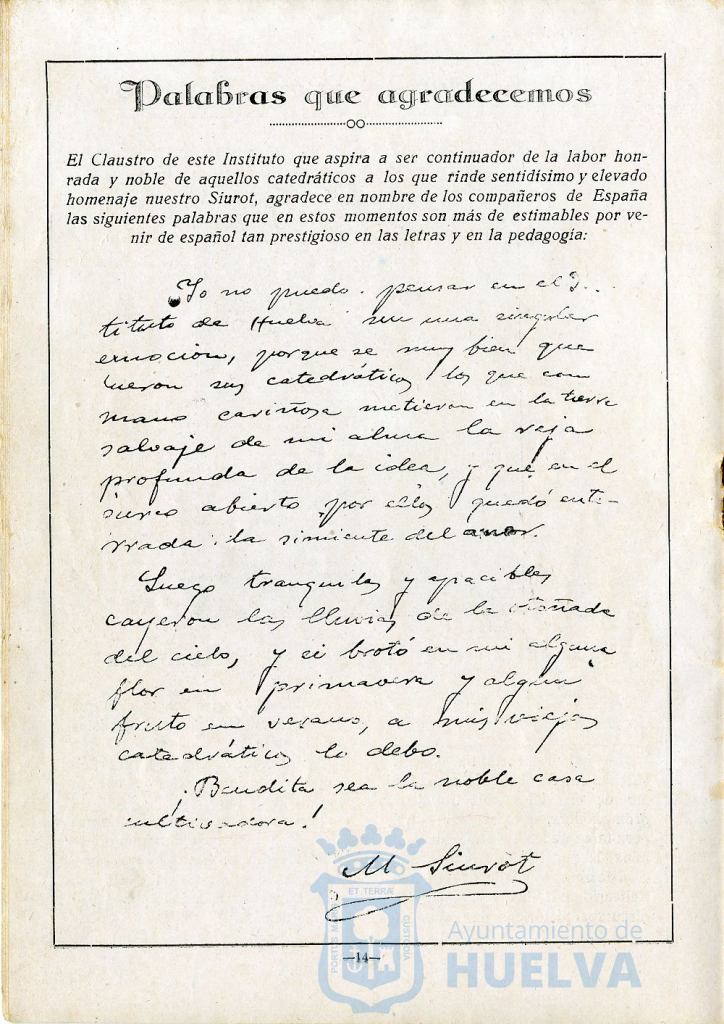 Palabras que agradecemos
El Claustro de este Instituto que aspira a ser continuador de la labor hon-
rada y noble de aquellos catedráticos a los que rinde sentidísimo y elevado
homenaje nuestro Siurot, agradece en nombre de los compañeros de España
las siguientes palabras que en estos momentos son más de estimables por ve-
nir de español tan prestigioso en las letras y en la pedagogía:
Yo no puedo pensar en el
tituto de Huelva sin una singular
emoción, porque se muy bien que
fueron sus catedráticos los que con
mano cariñosa metieron en la tierra
salvaje de mi alma la reja
profunda de la idea, y que en el
surco abierto por ellos quedó ente-
rrada la simiente del amor.
Luego tranquilas y apacibles
cayeron las lluvias de la otoñada
del cielo, y si brotó en mi alguna
flor en primavera y algun
fruto en verano, a mis viejos
catedráticos lo debo.
¡Bendita sea la noble casa
cultivadora!
M Siurot
—14—
PORTUS MARIS ET TERRAE CUSTODIA
Ayuntamiento de
HUELVA